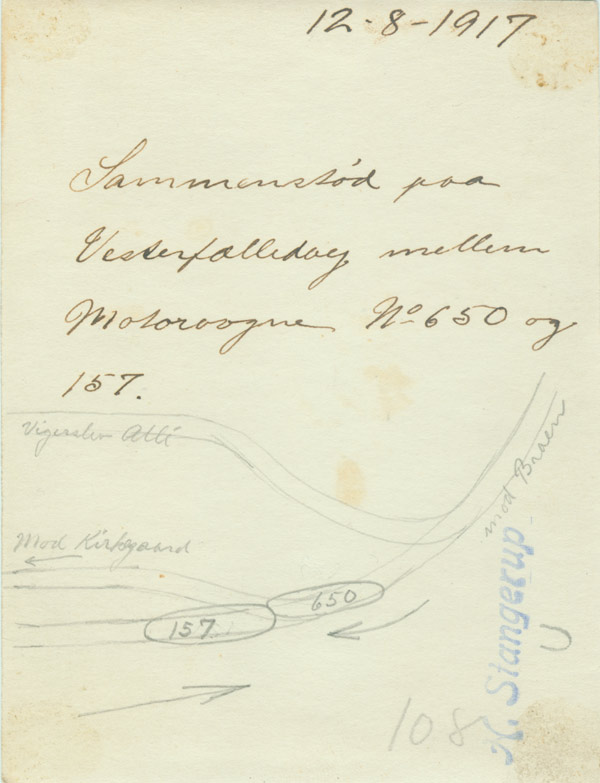 12-8-1917
Sammenstød paa
Vesterfælledvej mellem
Motorvogne No 650 og
157.
Vigerslev Allé
mod Broen
Mod Kirkegaard
650
157
N. Stangerup
108